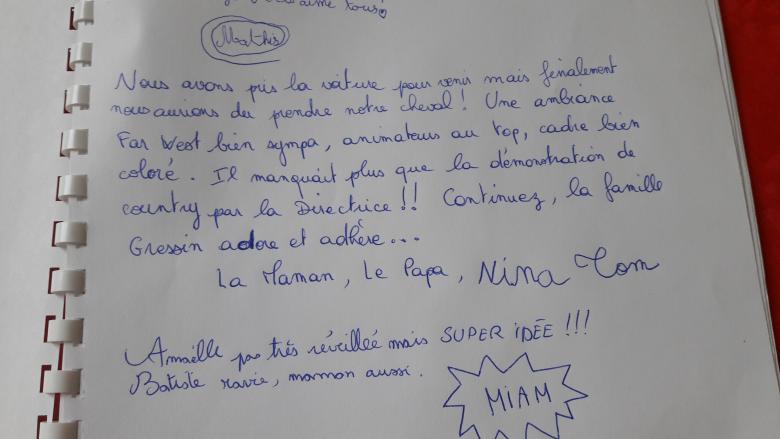 aime tous
Mathis
Nous avons pris la voiture pour venir mais finalement
nous aurions du prendre notre cheval ! Une ambiance
Far West bien sympa, animateurs au top, cadre bien
coloré. Il manquait plus que la démonstration de
country par la Directrice !! Continuez, la famille
Gressin adore et adhère...
La Maman, Le Papa, Nina Tom
Amaëlle pas très réveillée mais SUPER iDÉE !!!
Batiste ravie, maman aussi.
MiAM